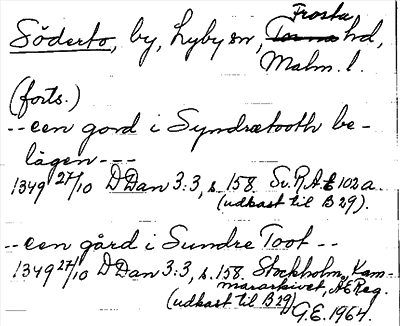 Frosta
Söderto, by, Lyby sn, Torna hd,
Malm. l.
(forts.)
--een gord i Syndrætooth be-
lägen---
1349 27/10 DDan 3:3, s. 158. Sv. RA E 102a.
(udkast til B 29).
--een gård i Sundre Toot --
1349 27/10 DDan 3:3, s. 158. Stockholm, Kam-
mararkivet, Æ Reg.
(udkast til B 29)
G.E. 1964.